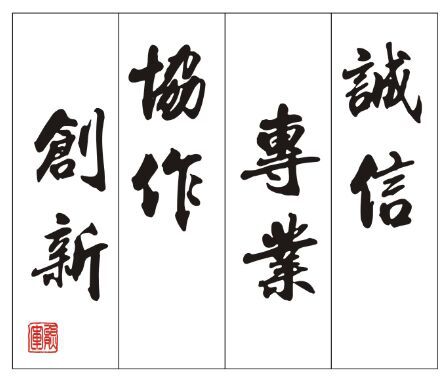 誠信
專業
協作
創新